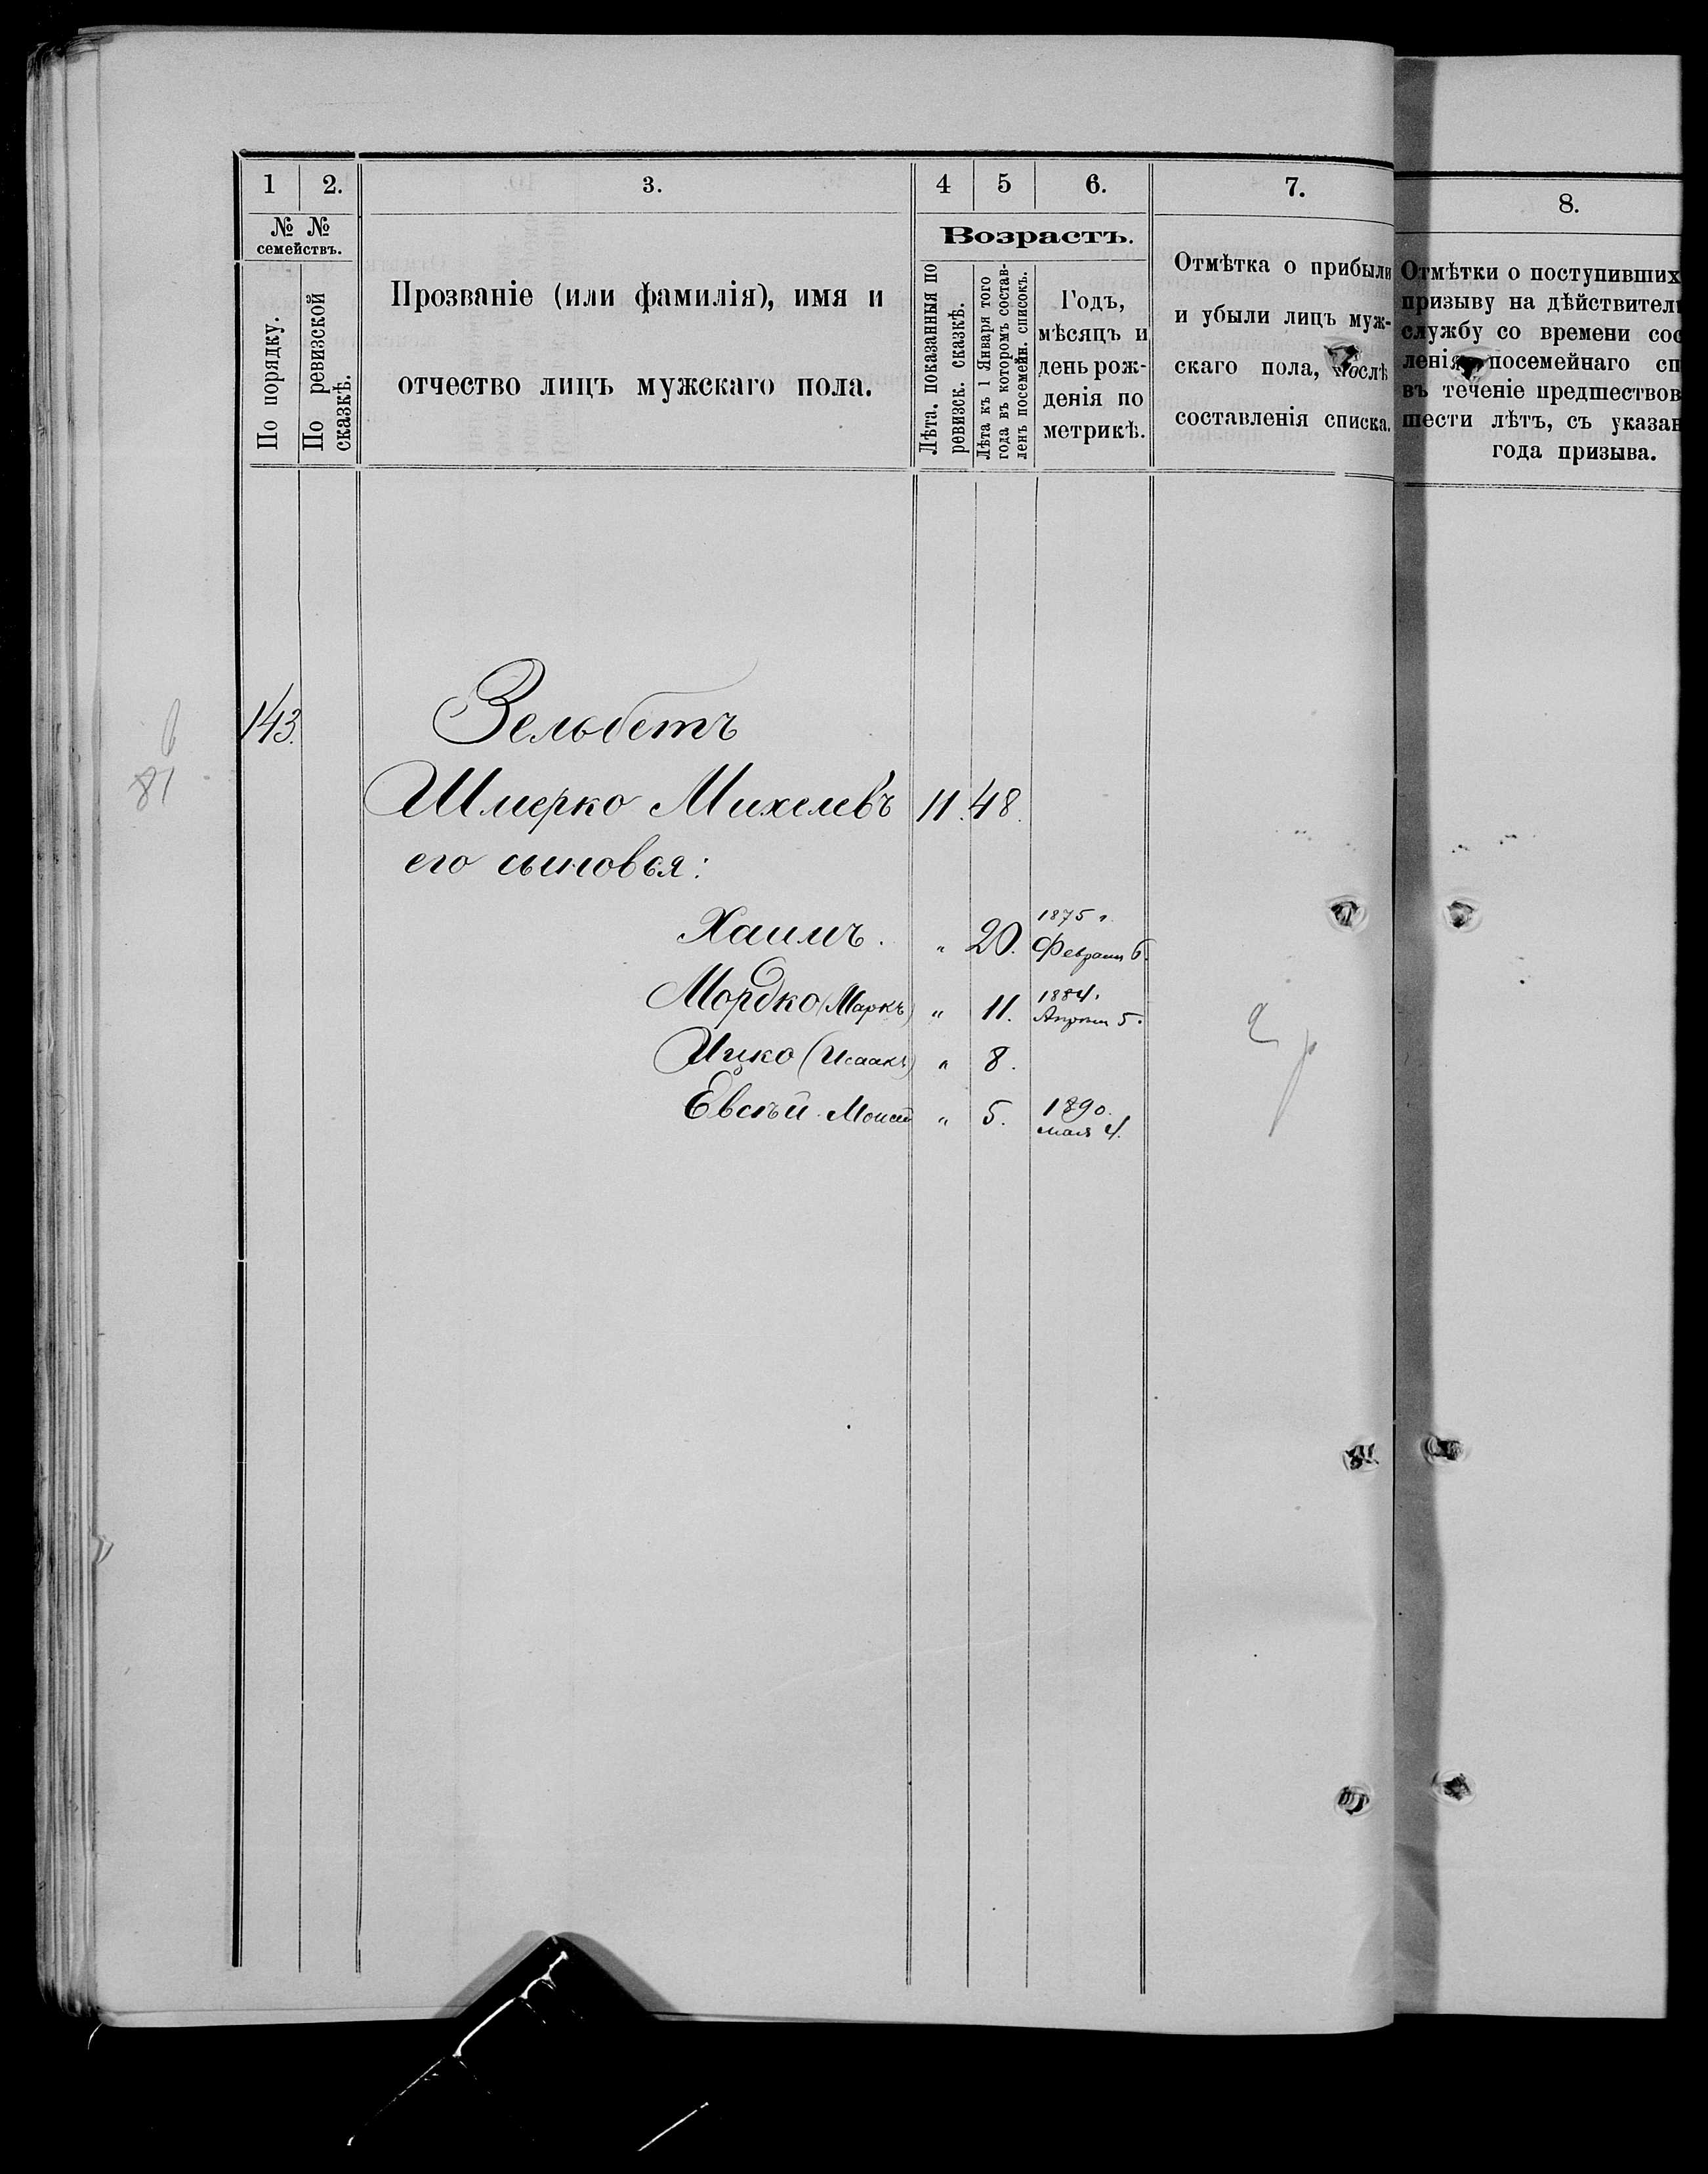 1 2. 3. 4 5 6. 7. 8.
№ №
семействъ.
По порядку.
По ревизской
сказкѣ.
Прозваніе (или фамилія), имя и
отчество лицъ мужскаго пола.
Возрастъ.
Лѣта, показанныя по
ревизск. сказкѣ.
Лѣта къ 1 Января того
года въ которомъ состав-
ленъ посемейн. списокъ.
Годъ,
мѣсяцъ и
день рож-
денія по
метрикѣ.
Отмѣтка о прибыли
и убыли лицъ муж-
скаго пола, послѣ
составленія списка.
Отмѣтки о поступивших
призыву на дѣйствител
службу со времени сос
ленія посемейнаго сп
въ теченіе предшествов
шести лѣтъ, съ указан
года призыва.
143. Зельбетъ
81
Шмерко Михелевъ 11. 48.
его сыновья:
Хаимъ. " 20. 1875 г.
Февраля 6.
Мордко (Маркъ) " 11. 1884.
Апрѣля 5.
Ицко (Исаакъ) " 8.
Евсѣй Моисей " 5. 1890.
мая 4.